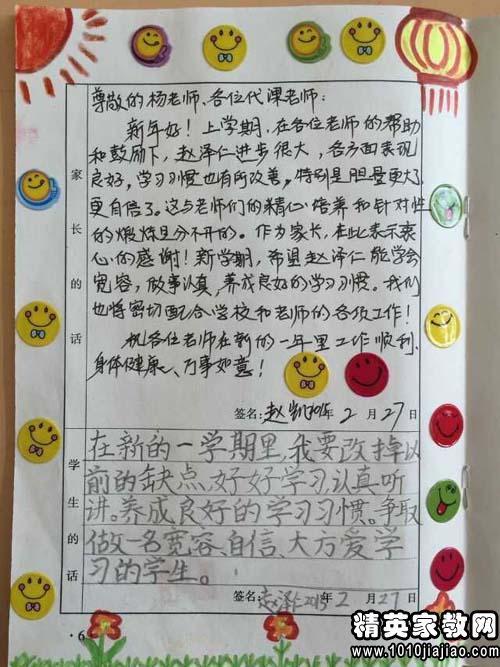 尊敬的杨老师、各位代课老师:
新年好!上学期,在各位老师的帮助
和鼓励下,赵泽仁进步很大,各方面表现
良好,学习习惯也有所改善。特别是胆量更大了
更自信了。这与老师们的精心培养和针对性
的煅炼是分不开的。作为家长,在此表示衷
心的感谢!新学期,希望赵泽仁能学会
宽容,做事认真,养成良好的学习习惯。我们
也将密切配合学校和老师的各项工作!
祝各位老师在新的一年里工作顺利、
身体健康、万事如意!
家长的话
签名:赵凯 2015年2月27日
在新的一学期里,我要改掉以
前的缺点,好好学习,认真听
讲。养成良好的学习习惯。争取
做一名宽容、自信、大方爱学
习的学生。
学生的话
签名:赵泽仁2015年2月27日
·6
精英家教网
www.1010jiajiao.com